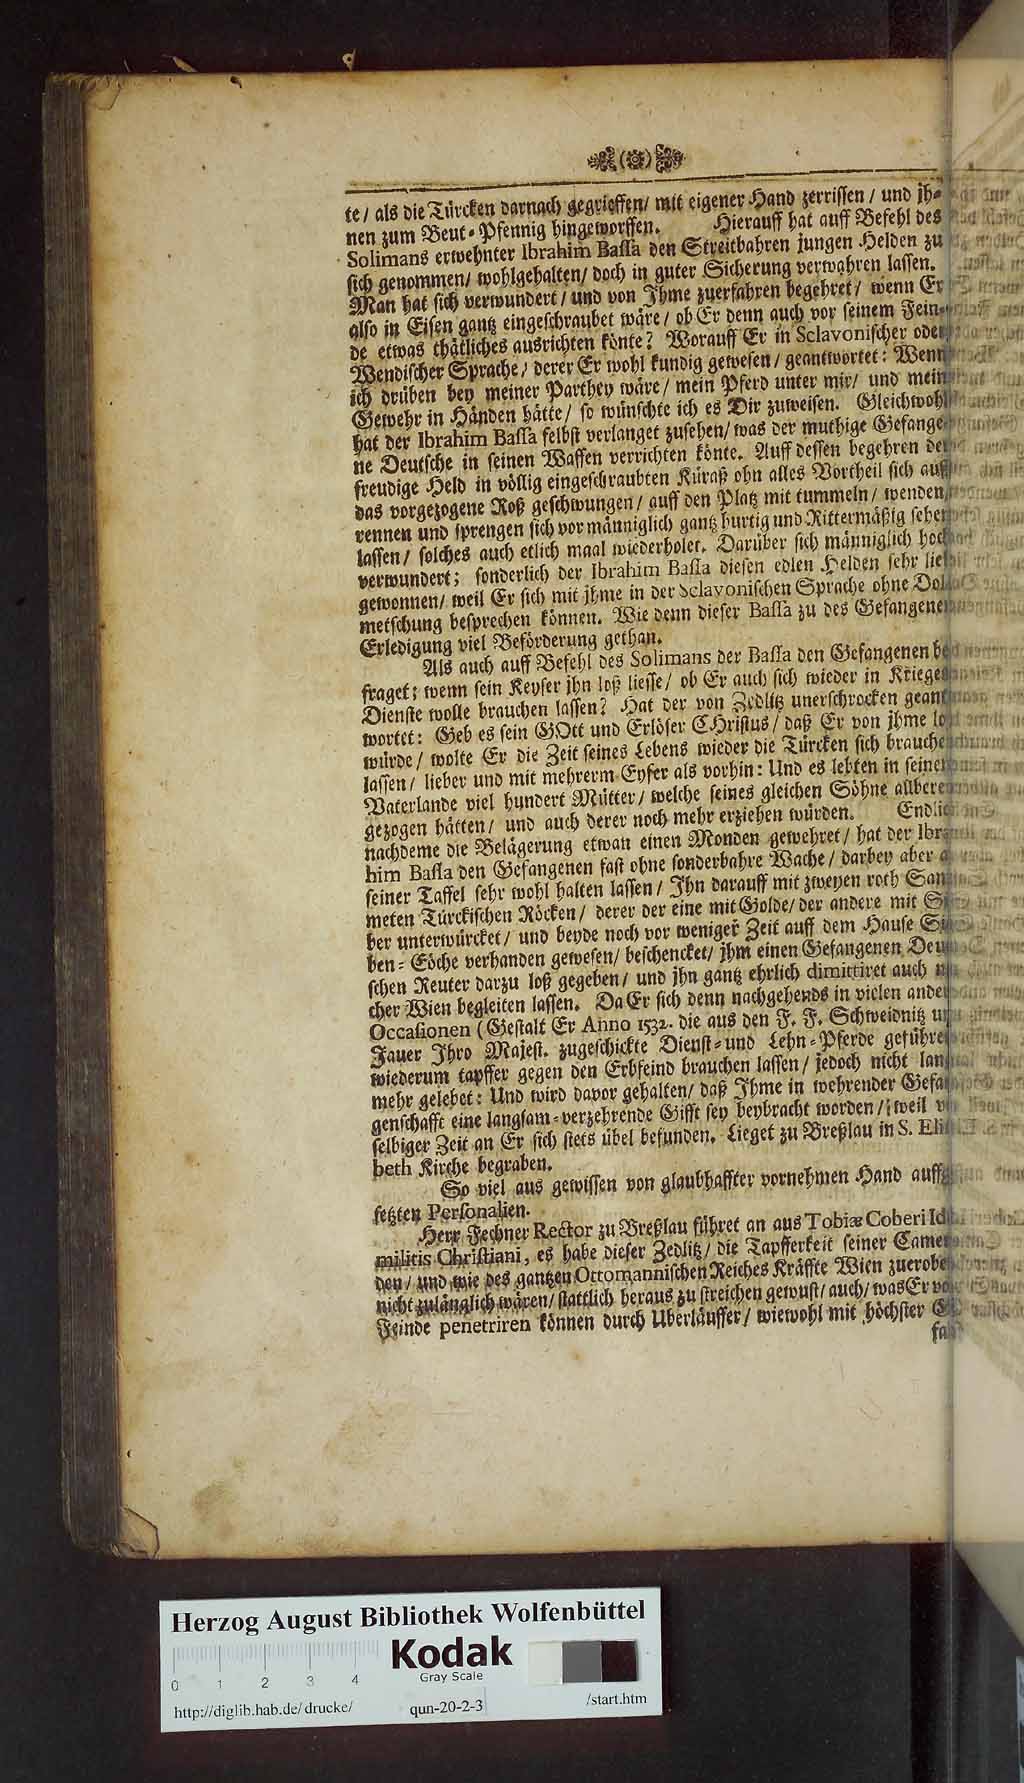 te/ als die Türcken darnach gegrieffen/ mit eigener Hand zerrissen/ und jh-
nen zum Beut-Pfennig hingeworffen. Hierauff hat auff Befehl des
Solimans erwehnter Ibrahim Bassa den Streitbahren jungen Helden zu
sich genommen/ wohlgehalten/ doch in guter Sicherung verwahren lassen.
Man hat sich verwundert/ und von Ihme zuerfahren begehret/ wenn Er
also in Eisen gantz eingeschraubet wäre/ ob Er denn auch vor seinem Fein-
de etwas thätliches ausrichten könte? Worauff Er in Sclavonischer oder
Wendischer Sprache/ derer Er wohl kundig gewesen/ geantwortet: Wenn
ich drüben bey meiner Parthey wäre/ mein Pferd unter mir/ und mein
Gewehr in Händen hätte/ so wünschte ich es Dir zuweisen. Gleichwohl
hat der Ibrahim Bassa selbst verlanget zusehen/ was der muthige Gefange-
ne Deutsche in seinen Waffen verrichten könte. Auff dessen begehren der
freudige Held in völlig eingeschraubten Küraß ohn alles Vortheil sich auff
das vorgezogene Roß geschwungen/ auff den Platz mit tummeln/ wenden/
rennen und sprengen sich vor männiglich gantz hurtig und Rittermäßig sehen
lassen/ solches auch etlich maal wiederholet. Darüber sich männiglich hoch
verwundert; sonderlich der Ibrahim Bassa diesen edlen Helden sehr lieb
gewonnen/ weil Er sich mit jhme in der Sclavonischen Sprache ohne Dol-
metschung besprechen können. Wie denn dieser Bassa zu des Gefangenen
Erledigung viel Beförderung gethan.
Als auch auff Befehl des Solimans der Bassa den Gefangenen be-
fraget; wenn sein Keyser jhn loß liesse/ ob Er auch sich wieder in Krieges
Dienste wolle brauchen lassen? Hat der von Zedlitz unerschrocken geant-
wortet: Geb es sein GOtt und Erlöser CHristus/ daß Er von jhme loß
würde/ wolte Er die Zeit seines Lebens wieder die Türcken sich brauchen
lassen/ lieber und mit mehrerm Eyfer als vorhin: Und es lebten in seinem
Vaterlande viel hundert Mütter/ welche seines gleichen Söhne allbereit
gezogen hätten/ und auch derer noch mehr erziehen würden. Endlich
nachdeme die Belägerung etwan einen Monden gewehret/ hat der Ibra-
him Bassa den Gefangenen fast ohne sonderbahre Wache/ darbey aber
seiner Taffel sehr wohl halten lassen/ Jhn darauff mit zweyen roth Sam-
meten Türckischen Röcken/ derer der eine mit Golde/ der andere mit Sil-
ber unterwürcket/ und beyde noch vor weniger Zeit auff dem Hause Sie-
ben-Eöche verhanden gewesen/ beschencket/ jhm einen Gefangenen Deut-
schen Reuter darzu loß gegeben/ und jhn gantz ehrlich dimittiret auch
cher Wien begleiten lassen. Da Er sich denn nachgehends in vielen andern
Occasionen (Gestalt Er Anno 1532. die aus den F. F. Schweidnitz und
Jauer Ihro Majest. zugeschickte Dienst- und Lehn-Pferde geführet
wiederum tapffer gegen den Erbfeind brauchen lassen/ jedoch nicht lang
mehr gelebet: Und wird davor gehalten/ daß Ihme in wehrender Gefan-
genschafft eine langsam-verzehrende Gifft sey beybracht worden/ weil von
selbiger Zeit an Er sich stets übel befunden. Lieget zu Breßlau in S. Elisa-
beth Kirche begraben.
So viel aus gewissen von glaubhaffter vornehmen Hand auffge-
setzten Personalien.
Herr Fechner Rector zu Breßlau führet an aus Tobiæ Coberi
militis Christiani, es habe dieser Zedlitz/ die Tapfferkeit seiner Camera-
den/ und wie des gantzen Ottomannischen Reiches Kräffte Wien zuerobern
nicht zulänglich wären/ stattlich heraus zu streichen gewust/ auch/ was Er vom
Feinde penetriren können durch Uberläuffer/ wiewohl mit höchster
Herzog August Bibliothek Wolfenbüttel
Kodak
Gray Scale
0 1 2 3 4
http://diglib.hab.de/drucke/ qun-20-2-3 /start.htm